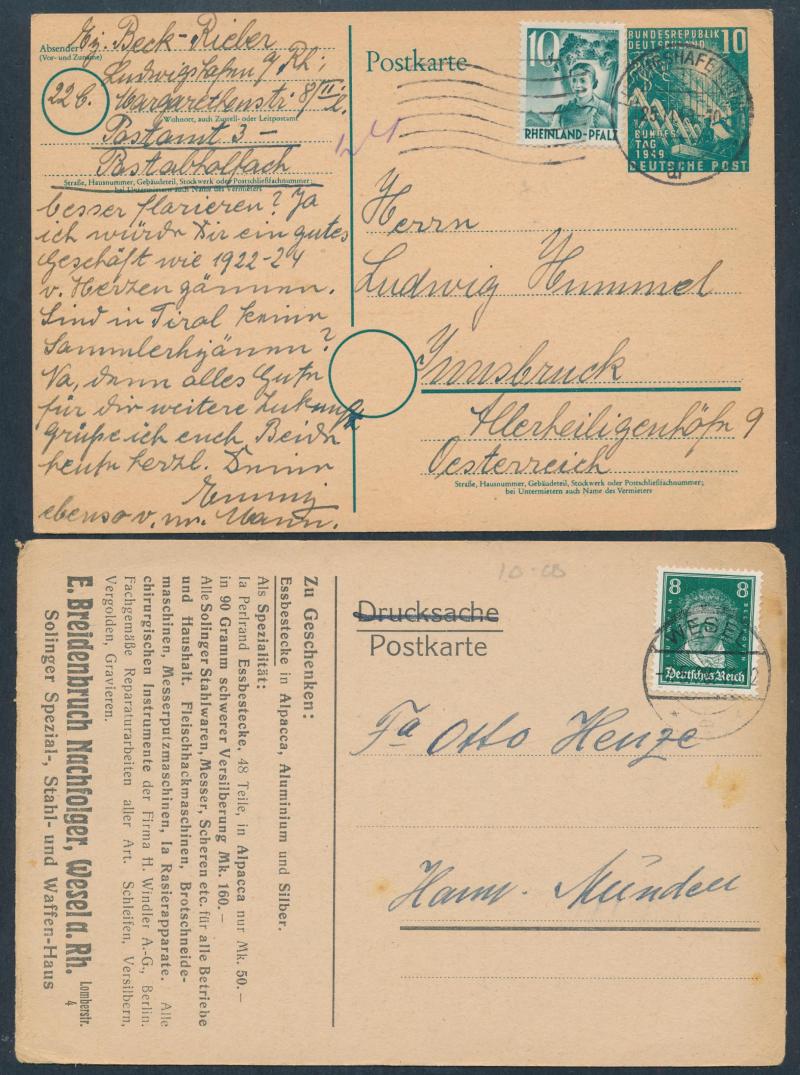 Absender:
(Vor- und Zuname)
Beck-Rieber
Ludwigshafen a/Rh.
22b.
Margarethenstr. 8
Wohnort, auch Zustell- oder Leitpostamt
Postamt 3 –
Postabholfach
Straße, Hausnummer, Gebäudeteil, Stockwerk oder Postschließfachnummer;
bei Untermietern auch Name des Vermieters
besser florieren? Ja
ich würde Dir ein gutes
Geschäft wie 1922-24
v. Herzen gönnen.
Sind in Tirol keine
Sammlerhyänen?
Na, dann alles Gute
für die weitere Zukunft
grüße ich euch Beide
heute herzl. Deine
Emmy
ebenso v. m. Mann.
Postkarte
10
RHEINLAND-PFALZ
BUNDESREPUBLIK
DEUTSCHLAND
10
BUNDES
TAG
1949
DEUTSCHE POST
Herrn
Ludwig Hummel
Innsbruck
Allerheiligenhöfe 9
Oesterreich
Straße, Hausnummer, Gebäudeteil, Stockwerk oder Postschließfachnummer;
bei Untermietern auch Name des Vermieters
Zu Geschenken:
Essbestecke in Alpacca, Aluminium und Silber.
Als Spezialität:
Ia Perlrand Essbestecke, 48 Teile, in Alpacca nur Mk. 50.–
in 90 Gramm schwerer Versilberung Mk. 160.–
Alle Solinger Stahlwaren, Messer, Scheren etc. für alle Betriebe
und Haushalt. Fleischhackmaschinen, Brotschneide-
maschinen, Messerputzmaschinen, Ia Rasierapparate. Alle
chirurgischen Instrumente der Firma H. Windler A.-G., Berlin.
Fachgemäße Reparaturarbeiten aller Art. Schleifen, Versilbern,
Vergolden, Gravieren.
E. Breidenbruch Nachfolger, Wesel a. Rh. Lomberstr. 4
Solinger Spezial-, Stahl- und Waffen-Haus
Drucksache
Postkarte
8 8
Deutsches Reich
WESEL
Fa Otto Henze
Hann. Münden